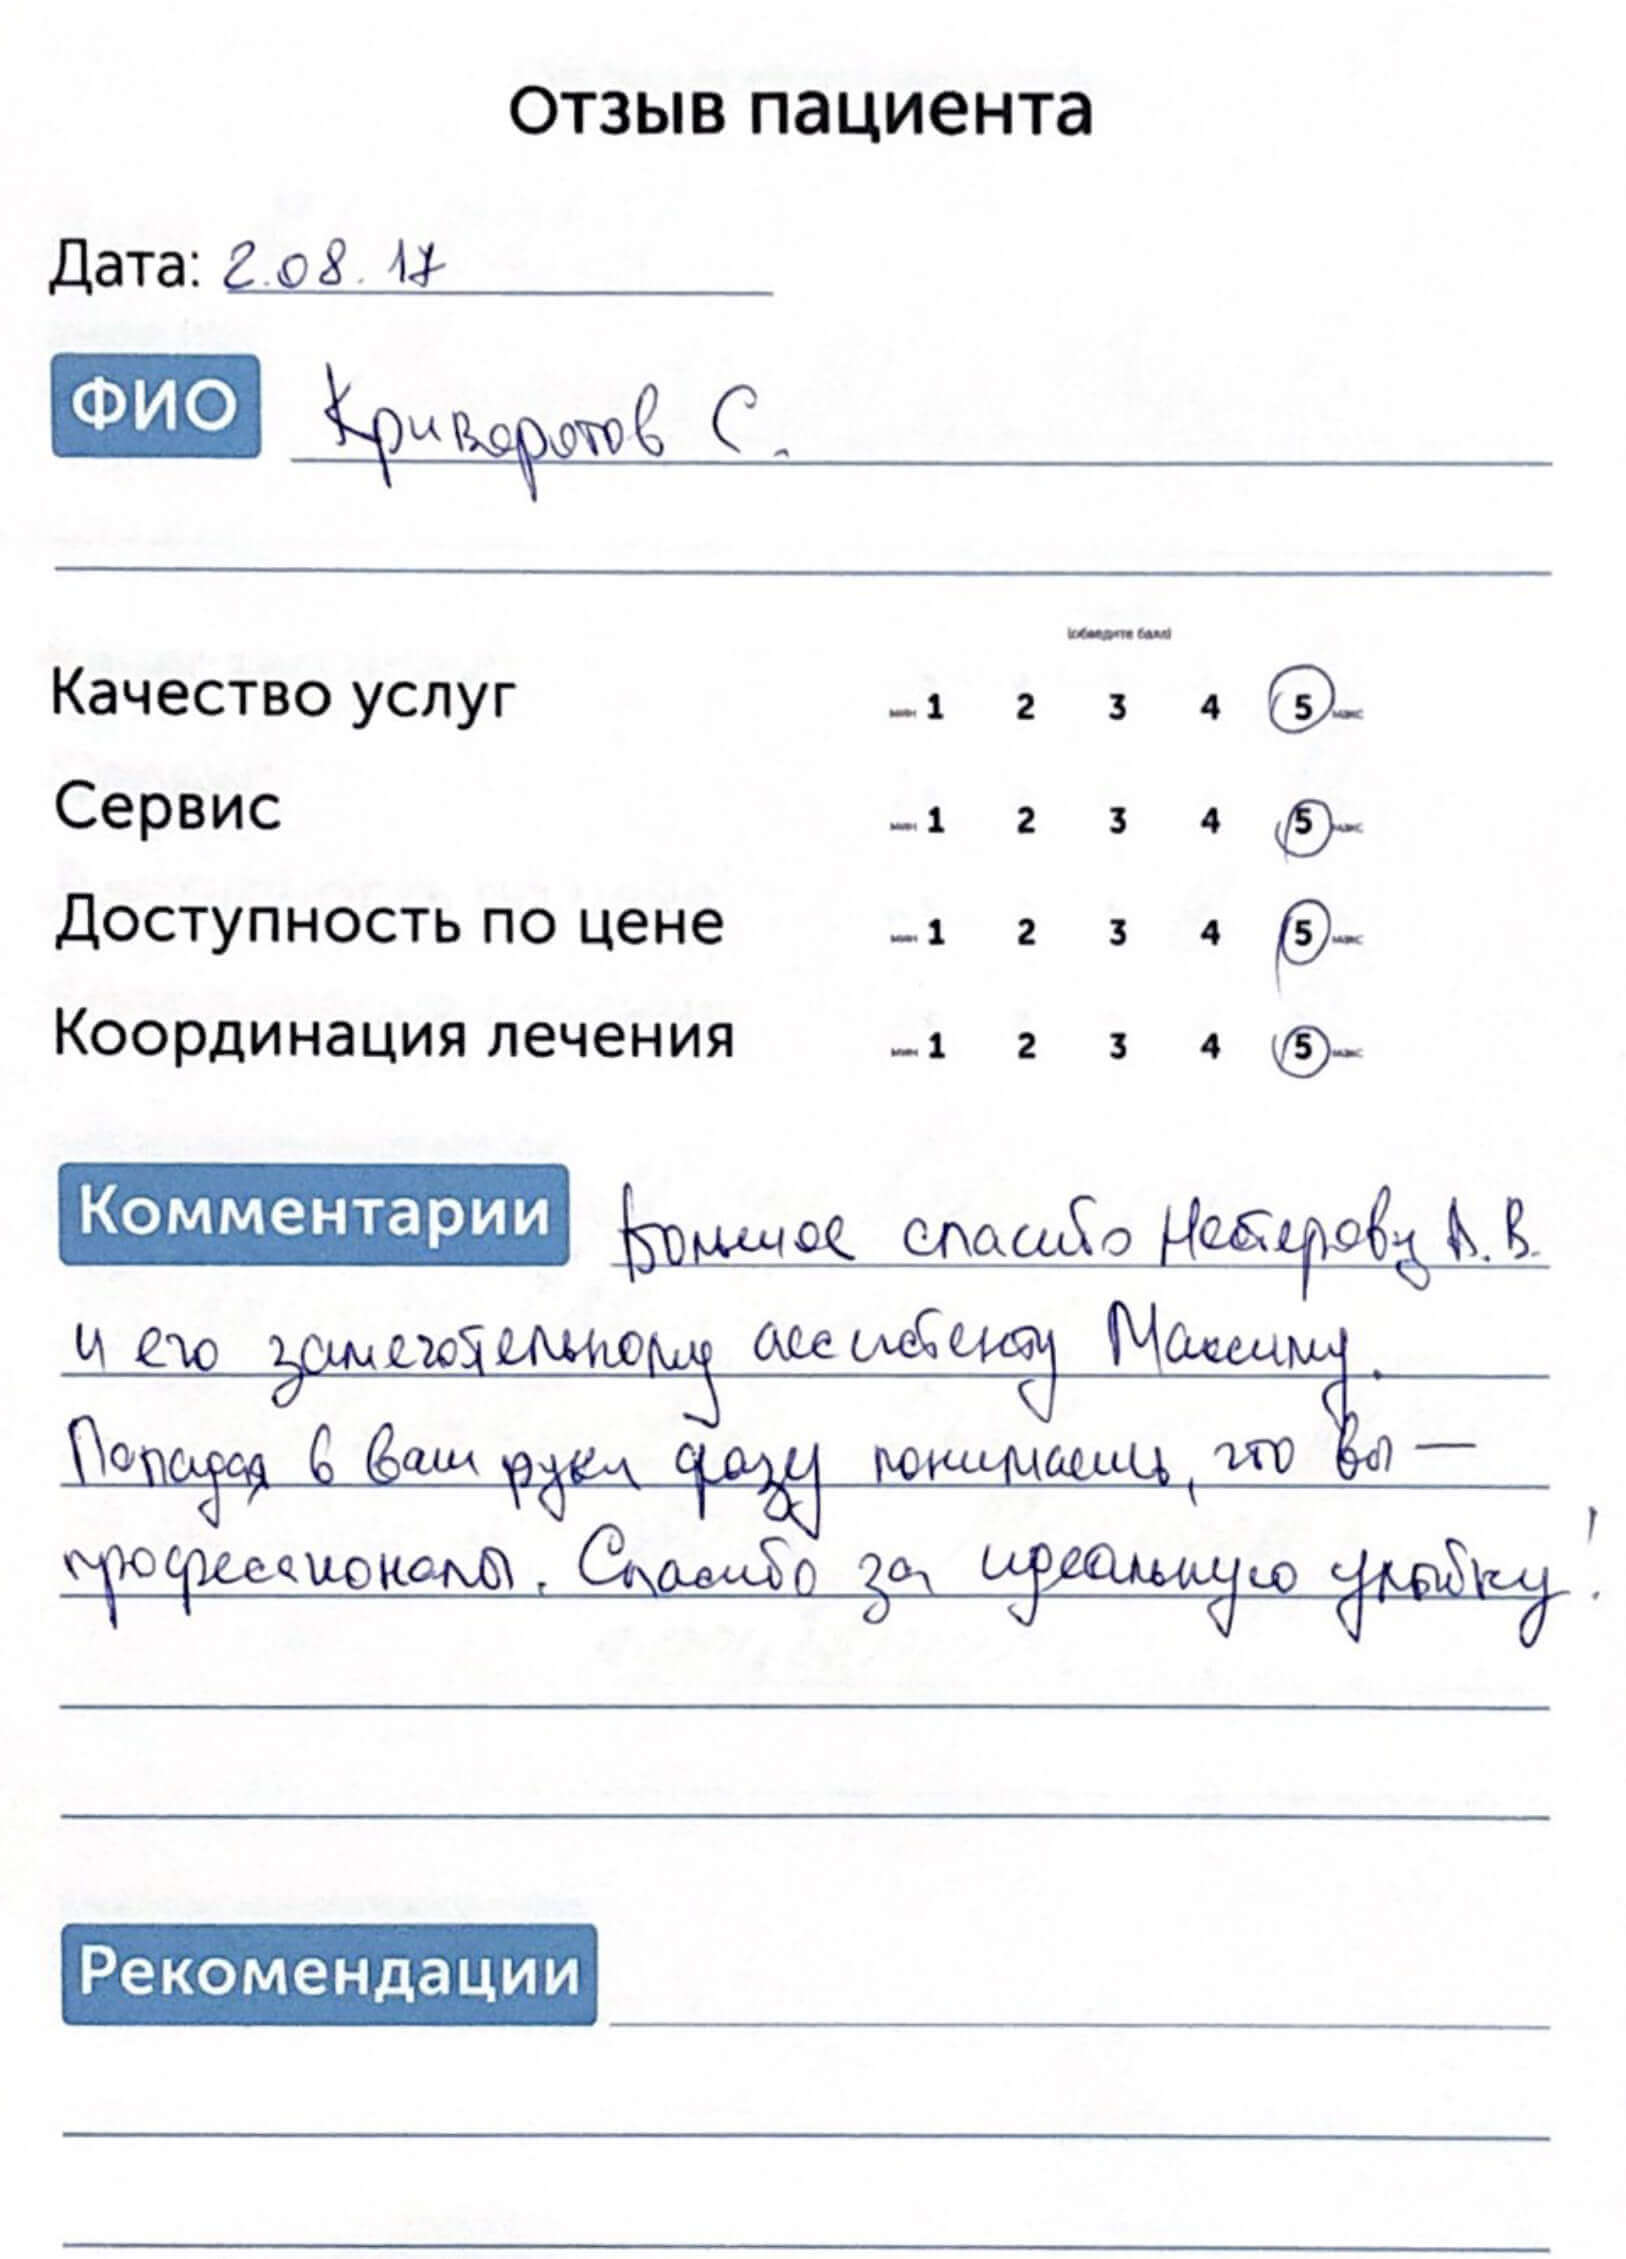 Отзыв пациента
Дата: 2.08.17
ФИО Криворотов С.
(обведите балл)
Качество услуг мин 1 2 3 4 5 макс
Сервис мин 1 2 3 4 5 макс
Доступность по цене мин 1 2 3 4 5 макс
Координация лечения мин 1 2 3 4 5 макс
Комментарии Большое спасибо Нестерову А.В.
и его замечательному ассистенту Максиму.
Попадая в ваши руки сразу понимаешь, что вы —
профессионалы. Спасибо за идеальную улыбку!
Рекомендации